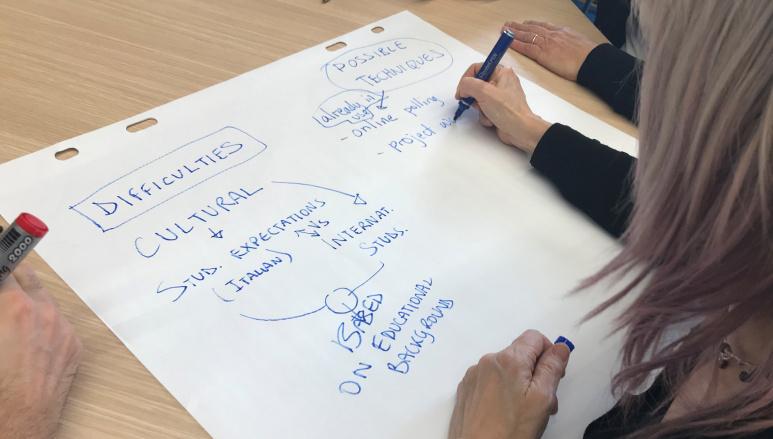 DIFFICULTIES
CULTURAL
STUD. EXPECTATIONS
(ITALIAN)
VS
INTERNAT.
STUDS.
BASED
ON EDUCATIONAL
BACKGROUND
POSSIBLE
TECHNIQUES
(already in
use)
- online polling
- project
2000